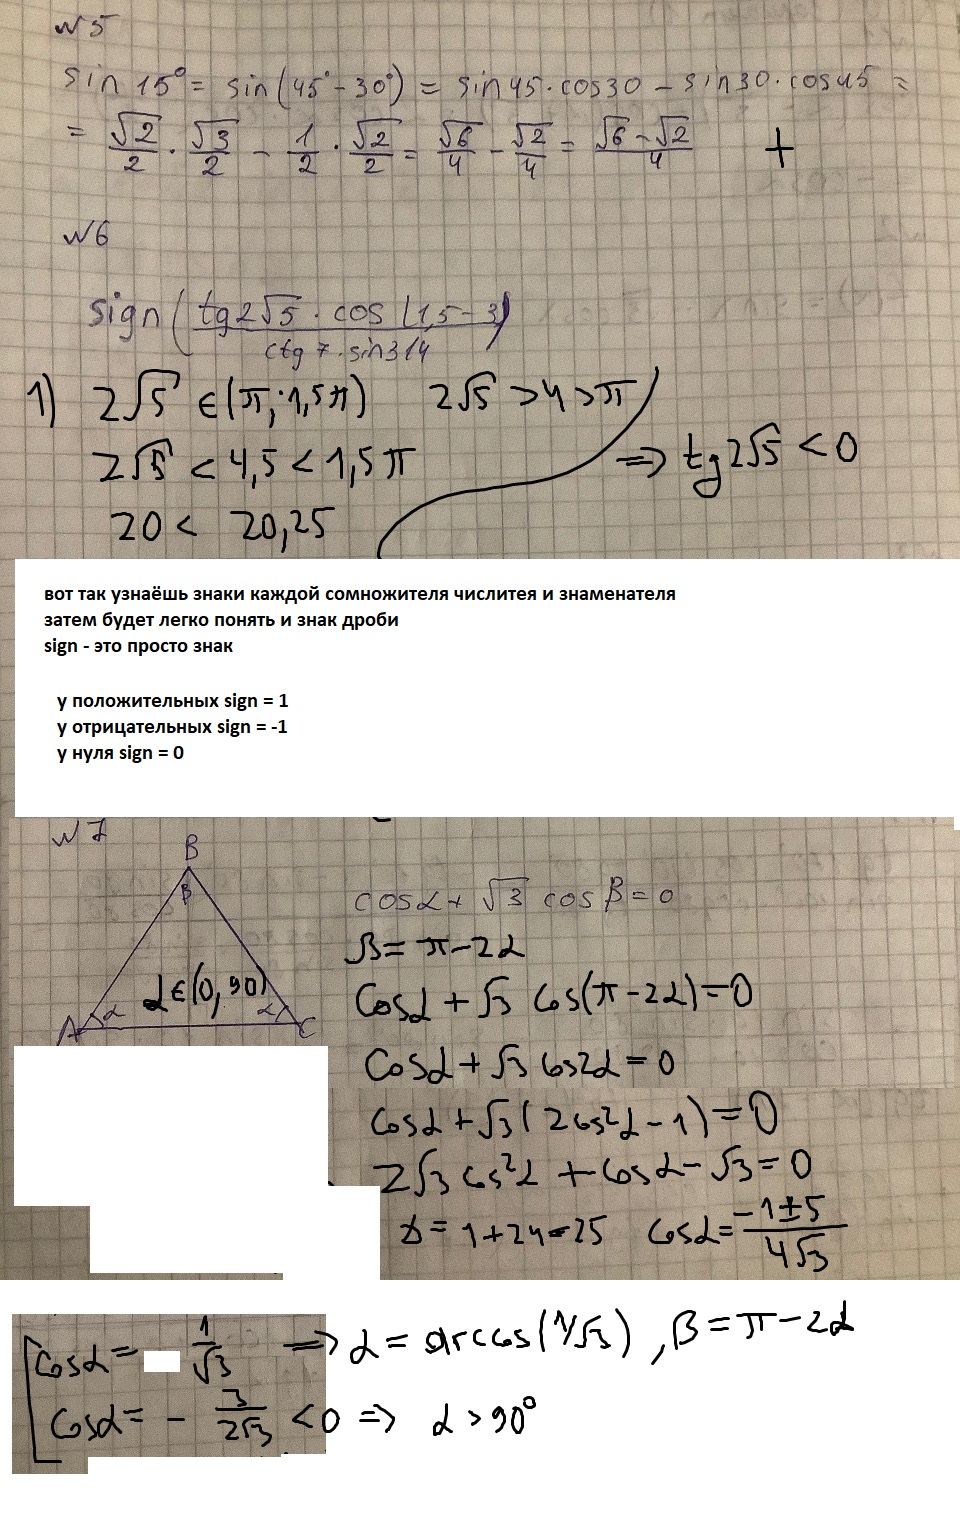 №5
sin 15° = sin(45° - 30°) = sin45·cos30 - sin30·cos45 =
= √2/2 · √3/2 - 1/2 · √2/2 = √6/4 - √2/4 = (√6 - √2)/4 +
№6
sign (tg2√5 · cos(1,5 - 3) / ctg 7 · sin314)
1) 2√5 ∈ (π; 1,5π) 2√5 > 4 > π
2√5 < 4,5 < 1,5π => tg2√5 < 0
20 < 20,25
вот так узнаёшь знаки каждой сомножителя числитея и знаменателя
затем будет легко понять и знак дроби
sign - это просто знак
у положительных sign = 1
у отрицательных sign = -1
у нуля sign = 0
№7
B
β
cosα + √3 cosβ = 0
β = π - 2α
α ∈ (0, 90)
cosα + √3 cos(π - 2α) = 0
A α α C
cosα + √3 cos2α = 0
cosα + √3 (2cos²α - 1) = 0
2√3 cos²α + cosα - √3 = 0
D = 1 + 24 = 25 cosα = (-1 ± 5)/(4√3)
cosα = 1/√3 => α = arccos(1/√3), β = π - 2α
cosα = - 3/(2√3) < 0 => α > 90°